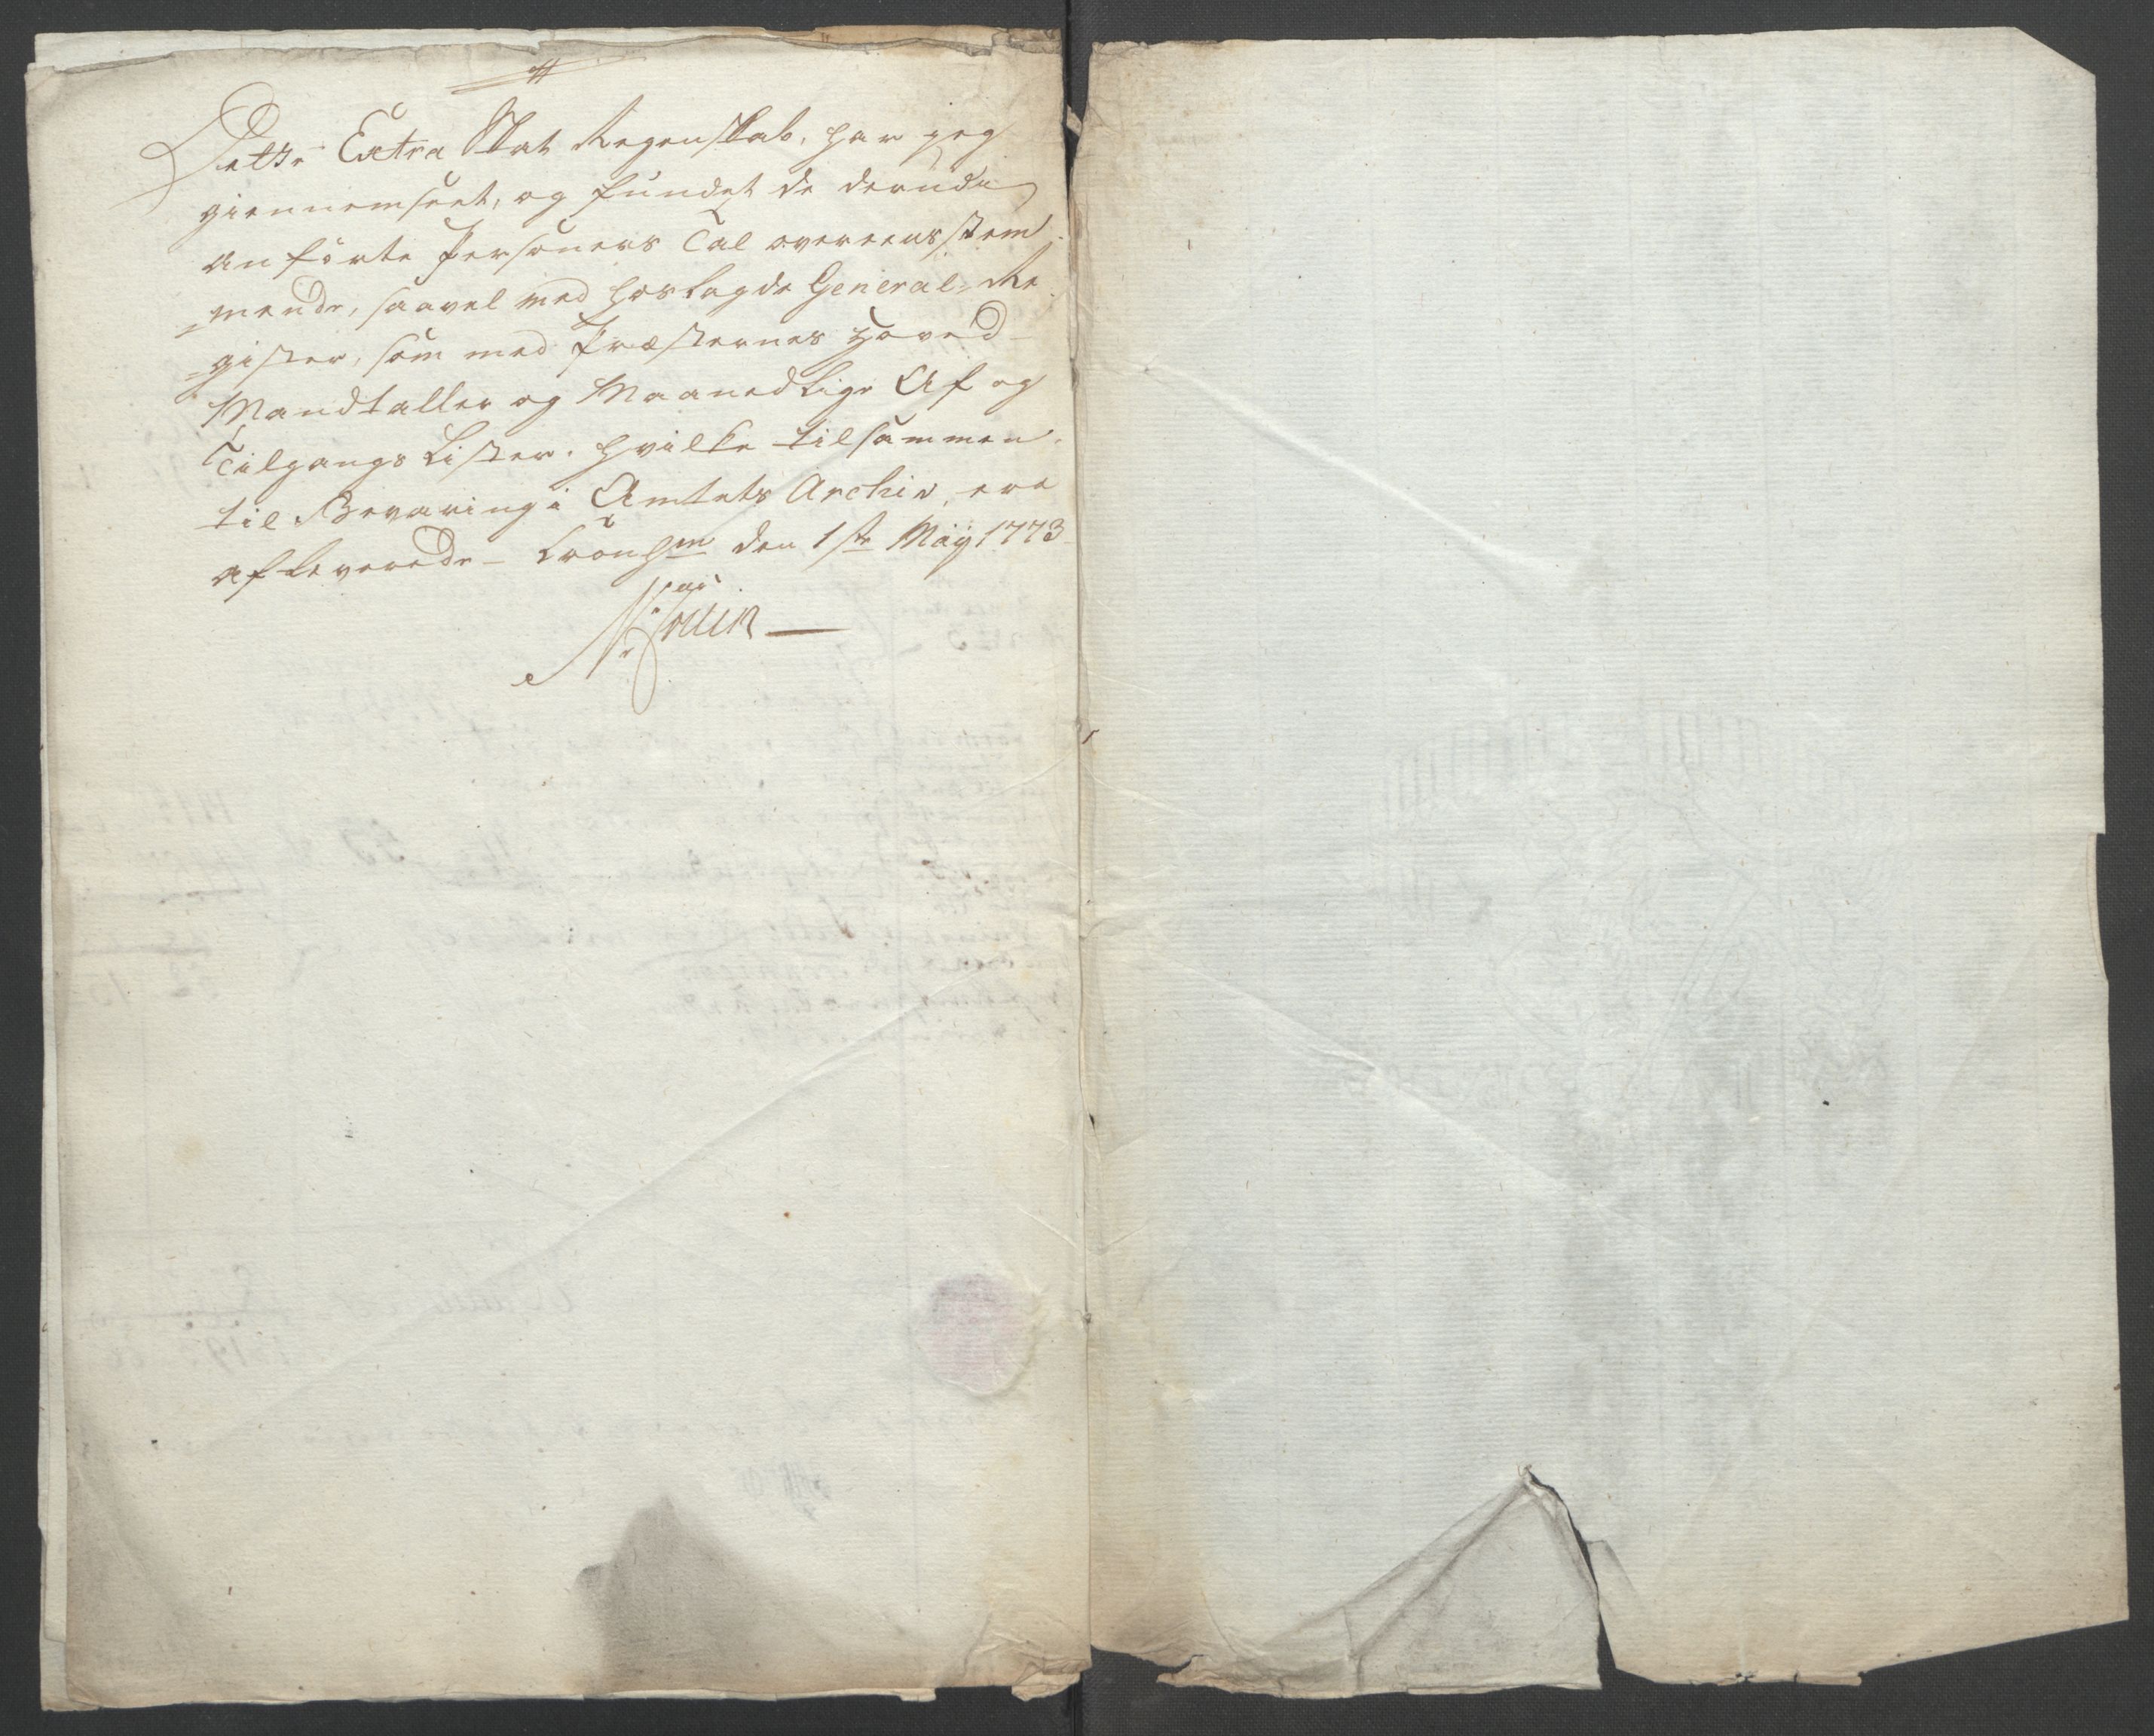 Dette Extra Skat Regenskab, har jeg
giennemseet, og fundet de derudi
anførte Personers Tal overeensstem
=mende, saavel med hoslagde General-Re
=gister, som med Præsternes Hoved-
Mandtaller og Maanedlige Af og
Tilgangs Lister. hvilke tilsammen
til Bevaring i Amtets Archiv, ere
afleverede - Tronhm den 1ste Maÿ 1773